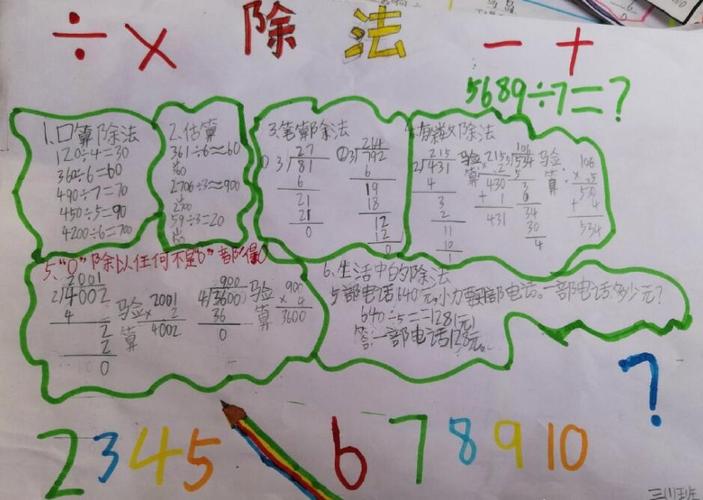 ÷ × 除法 - +
5689÷7=?
1.口算除法
120÷4=30
360÷6=60
490÷7=70
450÷5=90
4200÷6=700
2.估算
361÷6≈60
360
2706÷3≈900
2700
59÷3≈20
3.笔算除法
①
27
3/81
6
21
21
0
②
264
3/792
6
19
18
12
12
0
除法
215
2/431
4
3
2
11
10
1
验算
215
× 2
430
+ 1
431
106
5/534
5
34
30
4
验算
106
× 5
530
+ 4
534
5."0"除以任何不是"0"都得0
2001
2/4002
4
2
2
0
验算
2001
× 2
4002
900
4/3600
36
0
验算
900
× 4
3600
6.生活中的除法
5部电话640元,小力要部电话。一部电话多少元?
640÷5=128(元)
答:一部电话128元。
?
2 3 4 5 6 7 8 9 10